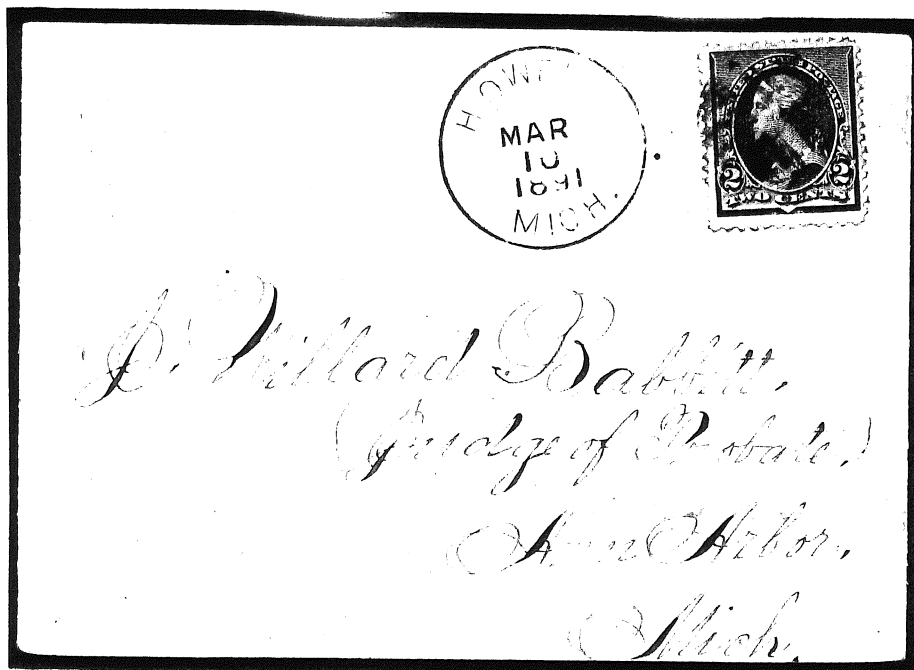 HOWELL
MAR
10
1891
MICH.
2 2
TWO CENTS
J. Willard Babbitt.
(Judge of Probate.)
Ann Arbor,
Mich.